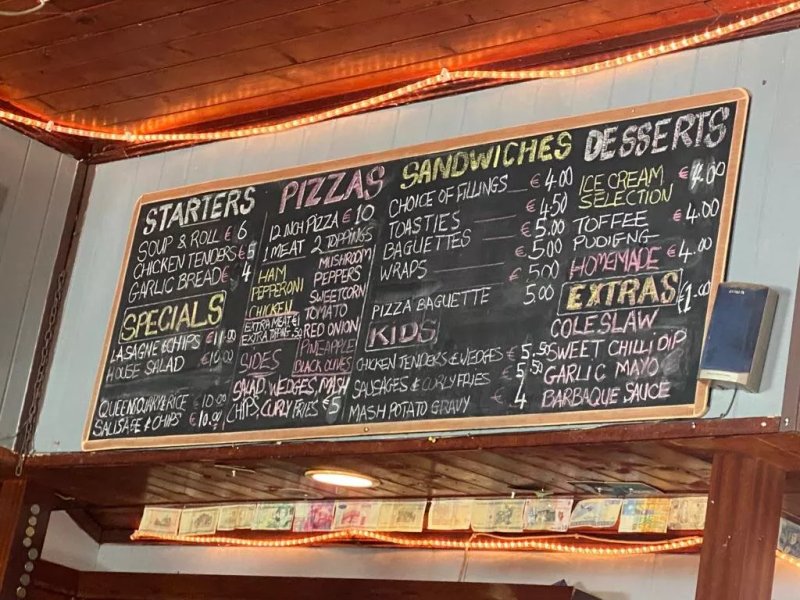 STARTERS
SOUP & ROLL € 6
CHICKEN TENDERS € 5
GARLIC BREAD € 4
SPECIALS
LASAGNE & CHIPS €11.00
HOUSE SALAD €10.00
QUEEN CURRY & RICE €10.00
SAUSAGE & CHIPS €10.00
PIZZAS
12 INCH PIZZA € 10
1 MEAT 2 TOPPINGS
HAM
PEPPERONI
CHICKEN
EXTRA MEAT €1
EXTRA TOPING .50
MUSHROOM
PEPPERS
SWEETCORN
TOMATO
RED ONION
PINEAPPLE
BLACK OLIVES
SIDES
SALAD, WEDGES, MASH
CHIPS CURLY FRIES €5
SANDWICHES
CHOICE OF FILLINGS € 4.00
€ 4.50
TOASTIES € 5.00
BAGUETTES € 5.00
WRAPS € 5.00
PIZZA BAGUETTE 5.00
KIDS
CHICKEN TENDERS & WEDGES € 5.50
SAUSAGES & CURLY FRIES € 5.50
MASH POTATO GRAVY € 4
DESSERTS
ICE CREAM SELECTION € 4.00
TOFFEE € 4.00
PUDIENG
HOMEMADE € 4.00
EXTRAS €1.00
COLESLAW
SWEET CHILLI DIP
GARLIC MAYO
BARBAQUE SAUCE